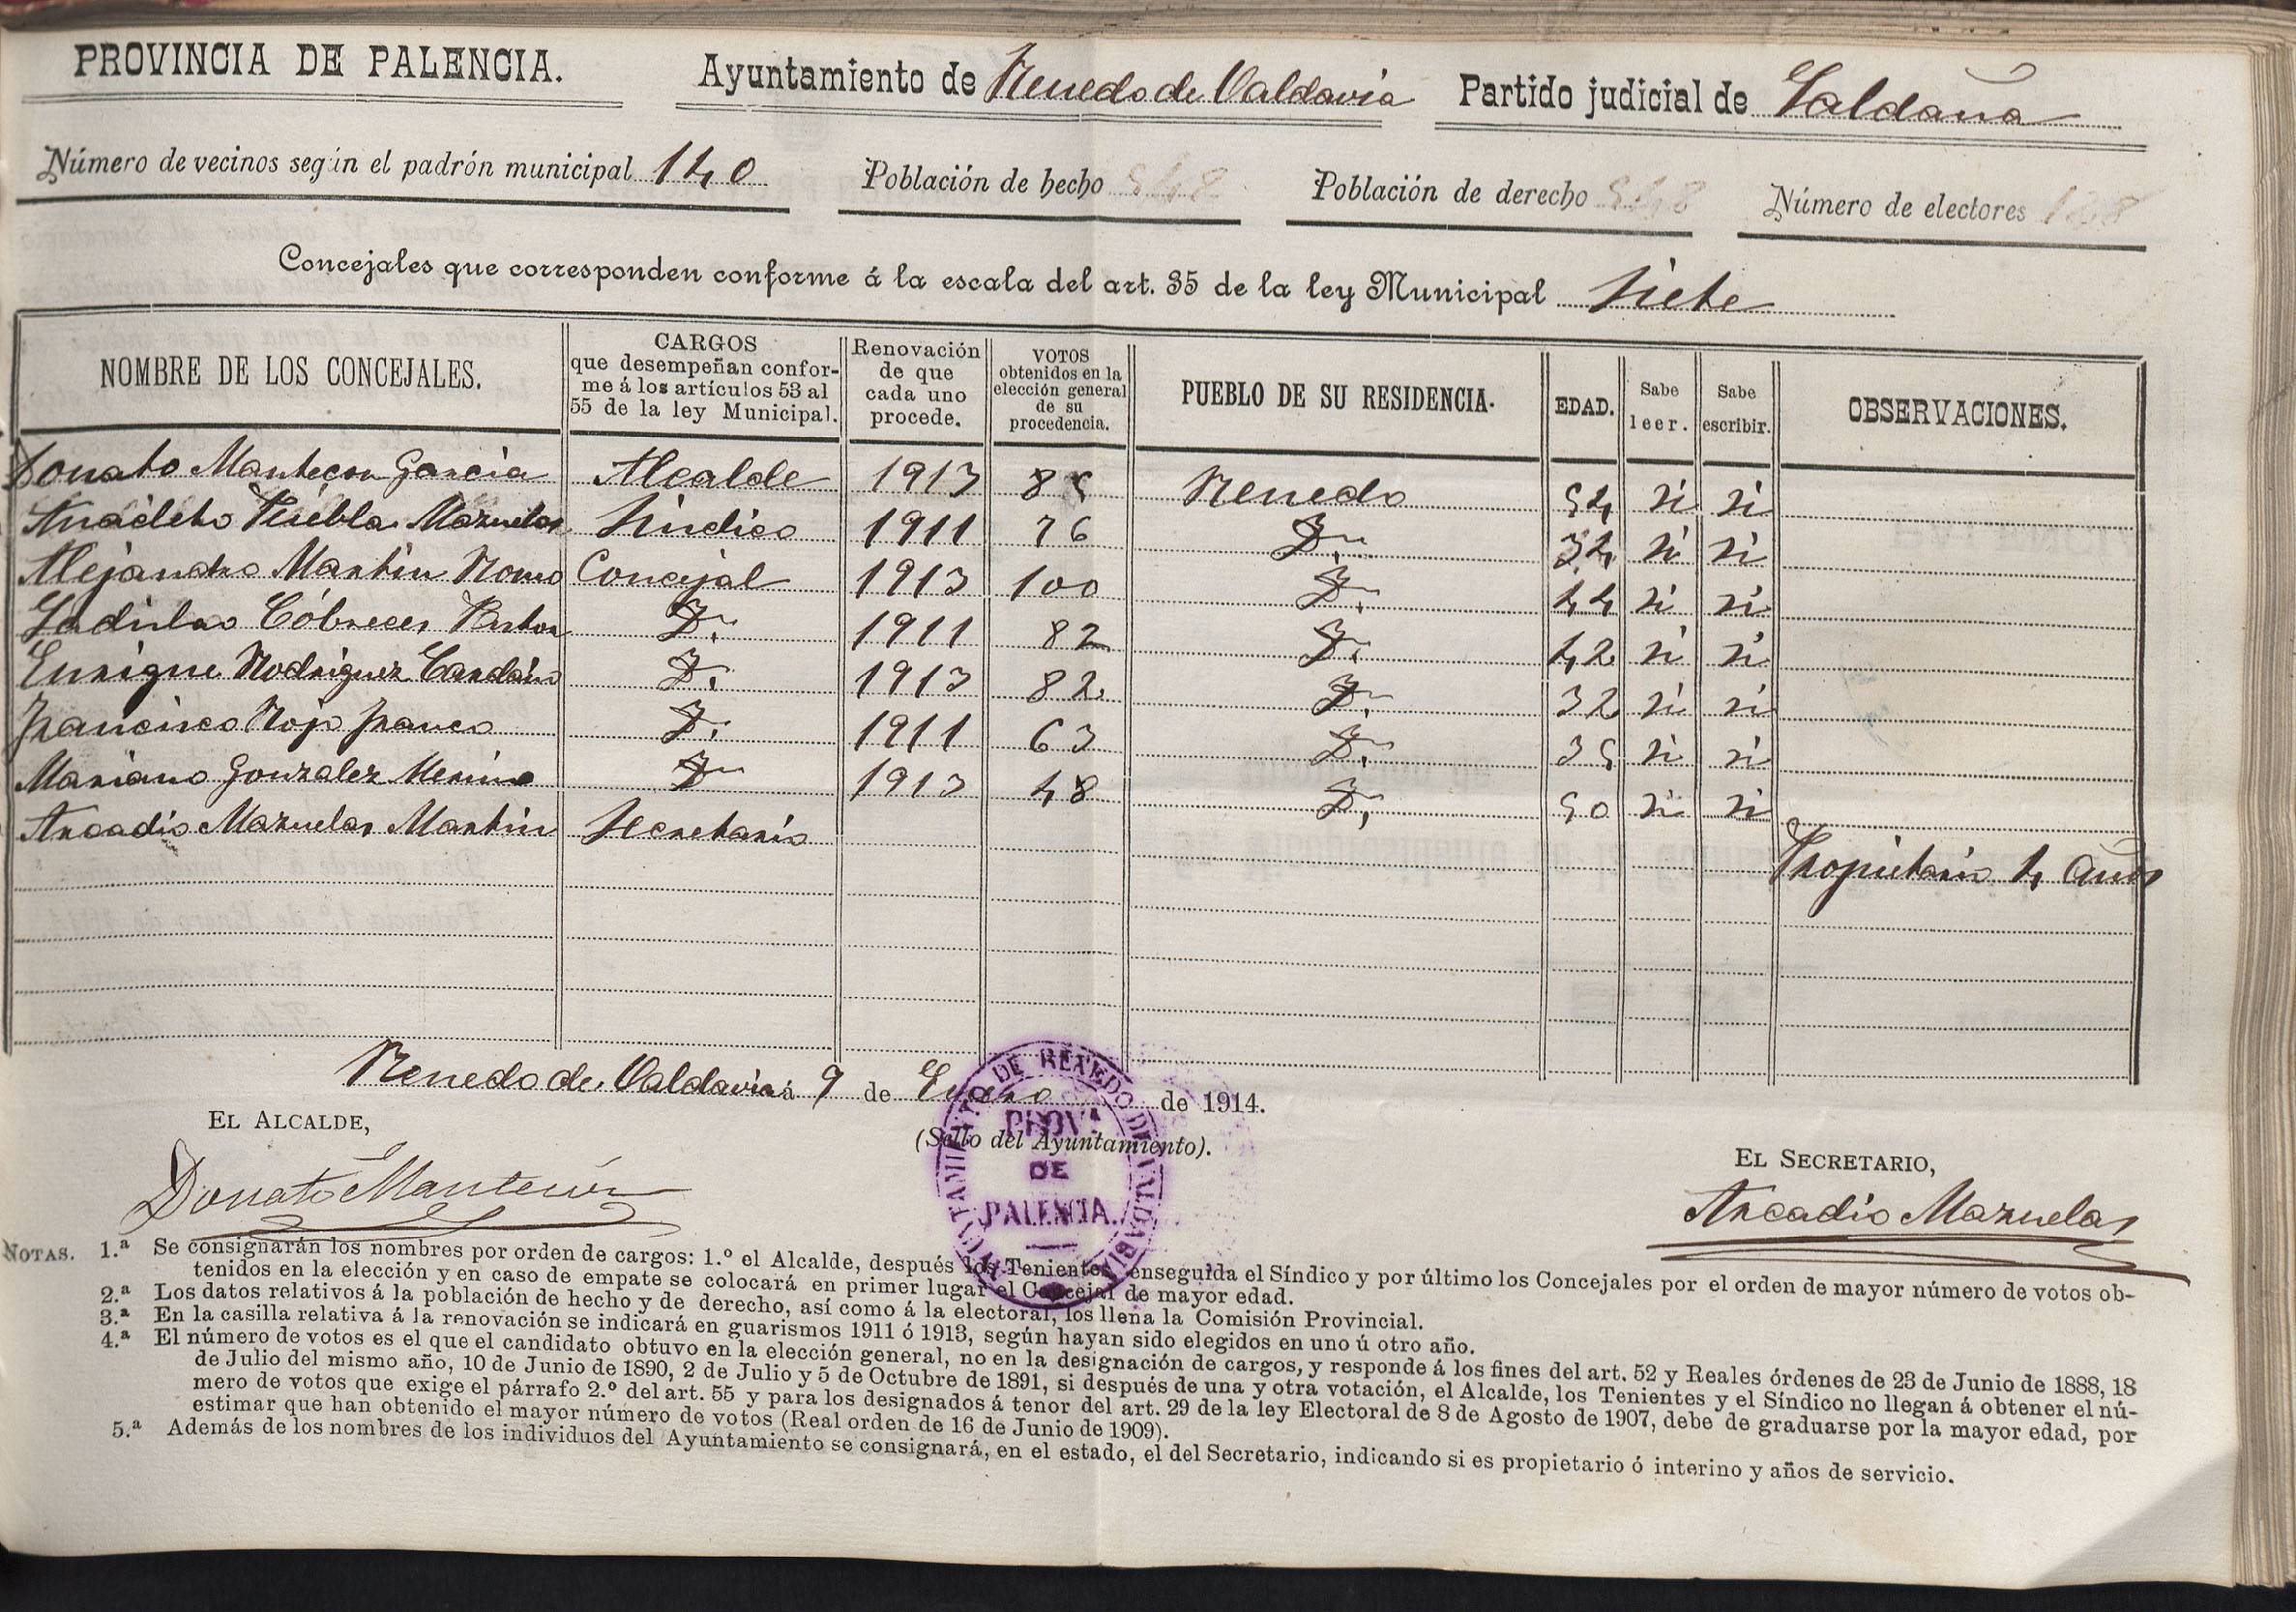 PROVINCIA DE PALENCIA. Ayuntamiento de Renedo de Valdavia Partido judicial de Saldaña
Número de vecinos según el padrón municipal 140 Población de hecho 548 Población de derecho 548 Número de electores 128
Concejales que corresponden conforme á la escala del art. 35 de la ley Municipal Siete
NOMBRE DE LOS CONCEJALES. CARGOS que desempeñan confor- me á los artículos 53 al 55 de la ley Municipal. Renovación de que cada uno procede. VOTOS obtenidos en la elección general de su procedencia. PUEBLO DE SU RESIDENCIA. EDAD. Sabe leer. Sabe escribir. OBSERVACIONES.
Donato Mantecon Garcia Alcalde 1913 85 Renedo 54 si si
Anacleto Puebla Mazuelas Sindico 1911 76 D. 34 si si
Alejandro Martin Romo Concejal 1913 100 D. 44 si si
Ladislao Cóbreces Pastor D. 1911 82 D. 42 si si
Enrique Rodriguez D. 1913 82 D. 32 si si
Francisco Rojo Franco D. 1911 63 D. 35 si si
Mariano Gonzalez Merino D 1913 48 D, 50 si si
Arcadio Mazuelas Martin Secretario Propietario 4 años
Renedo de Valdavia á 9 de Enero de 1914.
EL ALCALDE,
(Sello del Ayuntamiento).
AYUNTAMIENTO DE RENEDO DE VALDABIA
PROVª
DE
PALENCIA.
EL SECRETARIO,
Donato Mantecón
Arcadio Mazuelas
NOTAS. 1.ª Se consignarán los nombres por orden de cargos: 1.º el Alcalde, después los Tenientes, enseguida el Síndico y por último los Concejales por el orden de mayor número de votos ob-
tenidos en la elección y en caso de empate se colocará en primer lugar el Concejal de mayor edad.
2.ª Los datos relativos á la población de hecho y de derecho, así como á la electoral, los llena la Comisión Provincial.
3.ª En la casilla relativa á la renovación se indicará en guarismos 1911 ó 1913, según hayan sido elegidos en uno ú otro año.
4.ª El número de votos es el que el candidato obtuvo en la elección general, no en la designación de cargos, y responde á los fines del art. 52 y Reales órdenes de 23 de Junio de 1888, 18
de Julio del mismo año, 10 de Junio de 1890, 2 de Julio y 5 de Octubre de 1891, si después de una y otra votación, el Alcalde, los Tenientes y el Síndico no llegan á obtener el nú-
mero de votos que exige el párrafo 2.º del art. 55 y para los designados á tenor del art. 29 de la ley Electoral de 8 de Agosto de 1907, debe de graduarse por la mayor edad, por
estimar que han obtenido el mayor número de votos (Real orden de 16 de Junio de 1909).
5.ª Además de los nombres de los individuos del Ayuntamiento se consignará, en el estado, el del Secretario, indicando si es propietario ó interino y años de servicio.